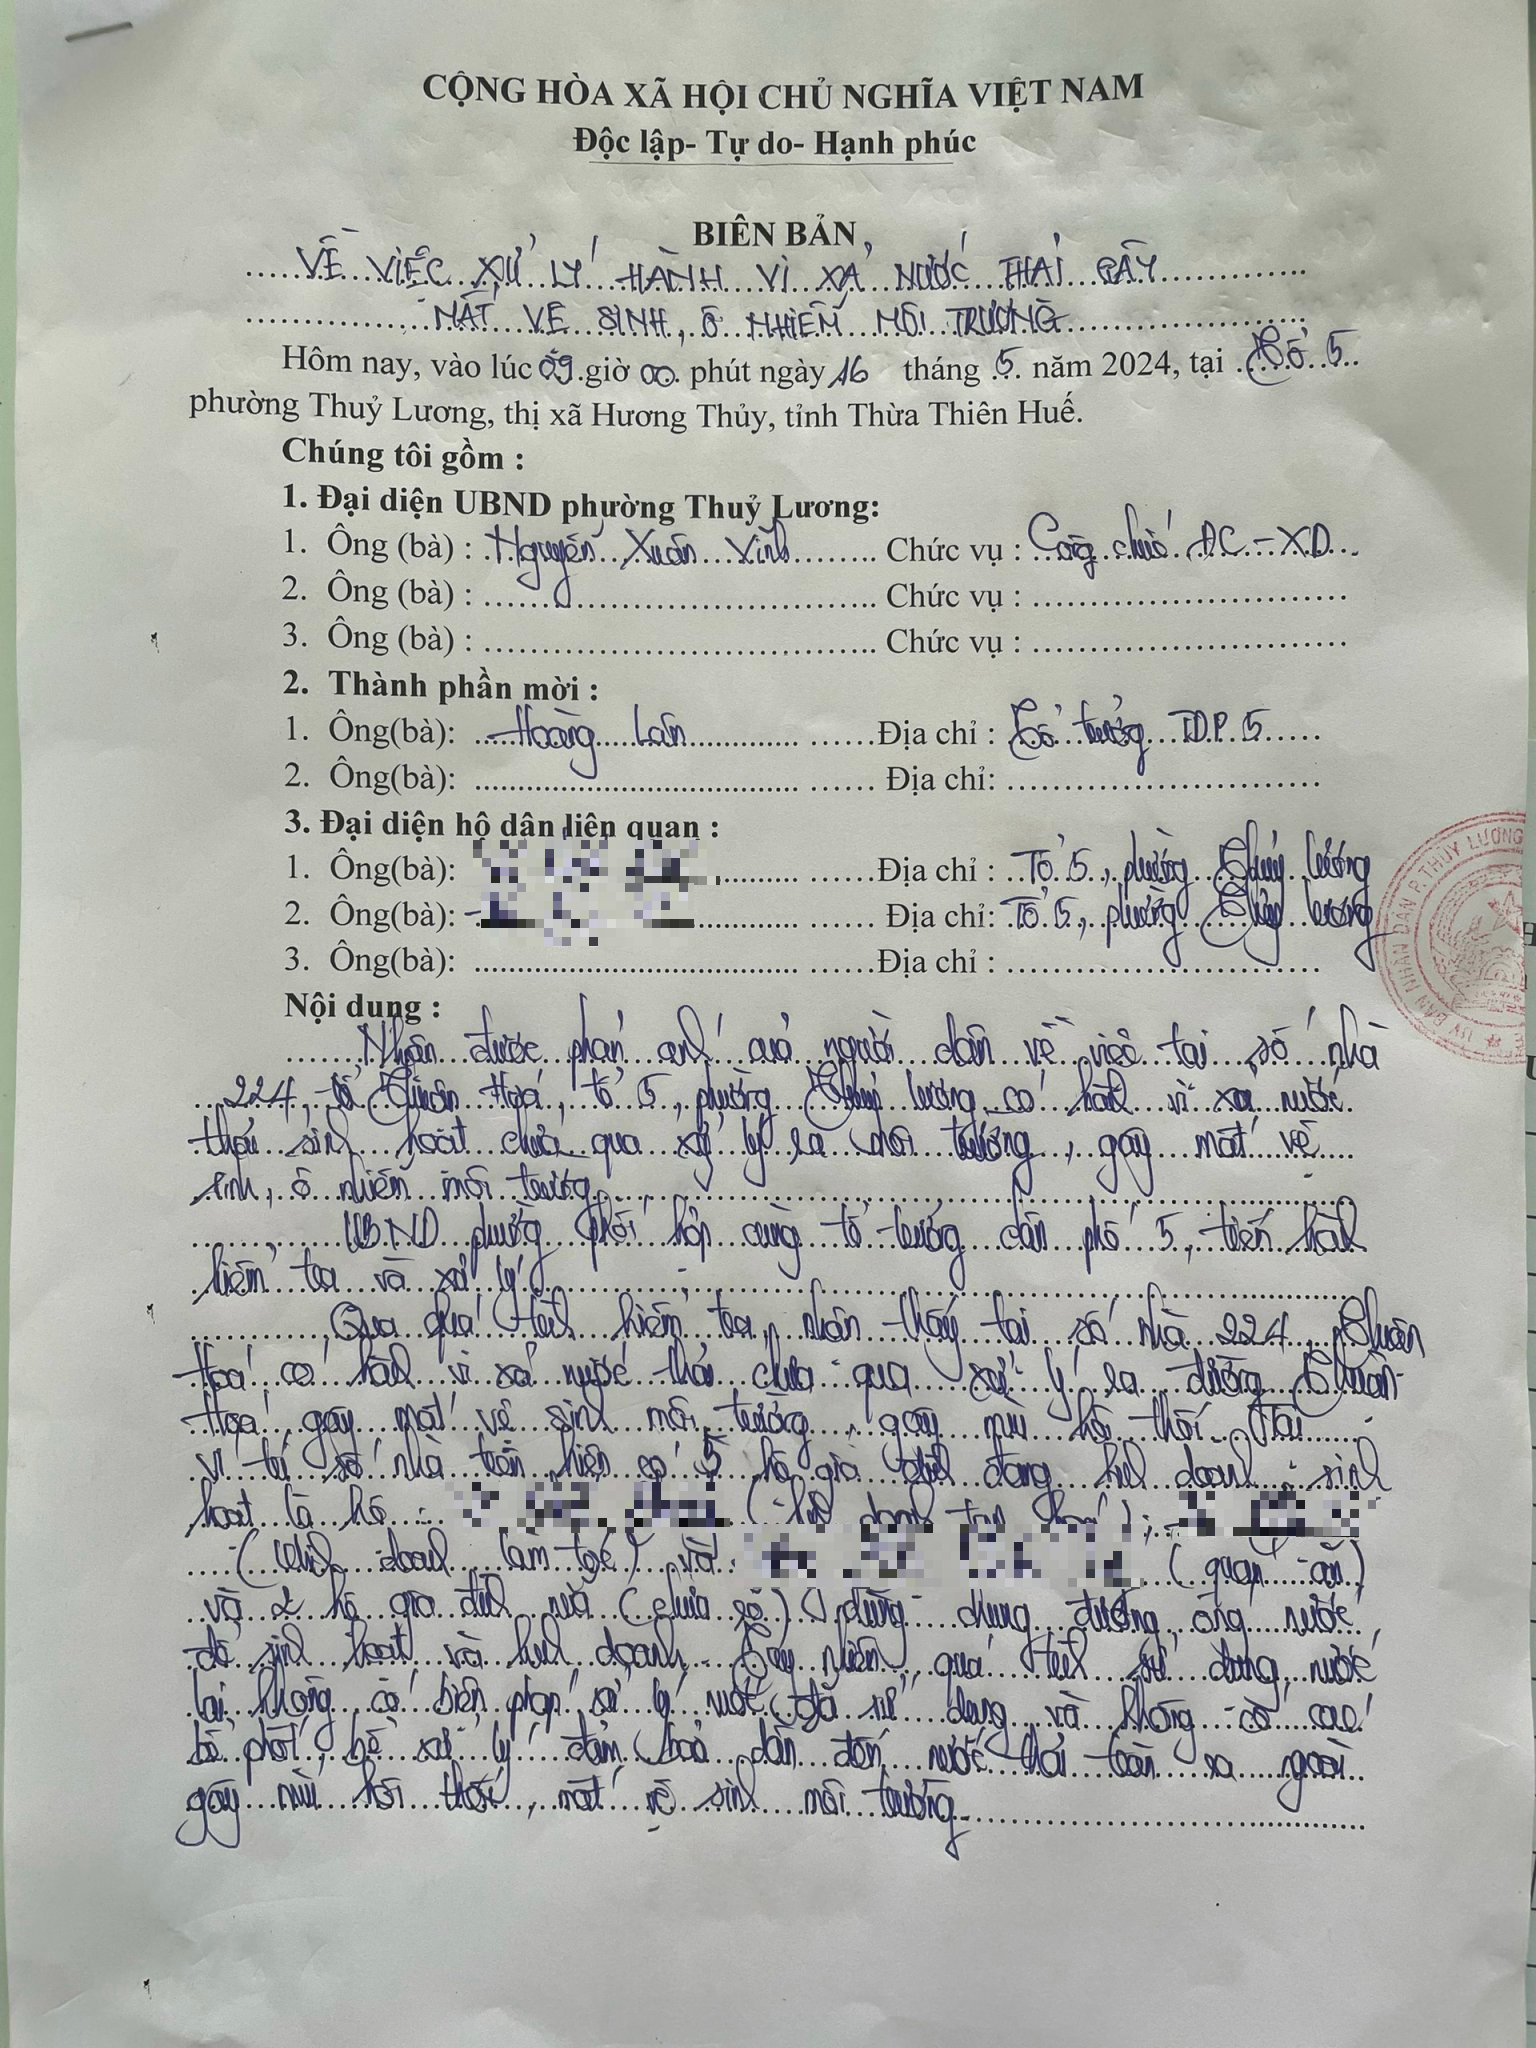 CỘNG HÒA XÃ HỘI CHỦ NGHĨA VIỆT NAM
Độc lập- Tự do- Hạnh phúc
BIÊN BẢN
VỀ VIỆC XỬ LÝ HÀNH VI XẢ NƯỚC THẢI GÂY
MẤT VỆ SINH, Ô NHIỄM MÔI TRƯỜNG
Hôm nay, vào lúc 09 giờ 00 phút ngày 16 tháng 5 năm 2024, tại Tổ 5
phường Thuỷ Lương, thị xã Hương Thủy, tỉnh Thừa Thiên Huế.
Chúng tôi gồm :
1. Đại diện UBND phường Thuỷ Lương:
1. Ông (bà) : Nguyễn Xuân Vinh Chức vụ : Công chức ĐC-XD
2. Ông (bà) : Chức vụ :
3. Ông (bà) : Chức vụ :
2. Thành phần mời :
1. Ông(bà): Hoàng Lân Địa chỉ : Tổ trưởng TDP 5
2. Ông(bà): Địa chỉ:
3. Đại diện hộ dân liên quan :
1. Ông(bà): Địa chỉ : Tổ 5, phường Thuỷ Lương
2. Ông(bà): Địa chỉ: Tổ 5, phường Thuỷ Lương
3. Ông(bà): Địa chỉ :
Nội dung :
Nhận được phản ánh của người dân về việc tại số nhà
224, Thuận Hoá, tổ 5, phường Thuỷ Lương có hành vi xả nước
thải sinh hoạt chưa qua xử lý ra môi trường, gây mất vệ
sinh, ô nhiễm môi trường
UBND phường phối hợp cùng tổ trưởng dân phố 5, tiến hành
kiểm tra và xử lý
Qua quá trình kiểm tra, nhận thấy tại số nhà 224, Thuận
Hoá có hành vi xả nước thải chưa qua xử lý ra đường Thuận
Hoá, gây mất vệ sinh môi trường, gây mùi hôi thối. Tại
vị trí số nhà trên hiện có 5 hộ gia đình đang kinh doanh, sinh
hoạt là hộ : (kinh doanh );
(kinh doanh làm tóc) và (quán ăn)
và 2 hộ gia đình nữa (chưa rõ) dùng chung đường ống nước
để sinh hoạt và kinh doanh. Tuy nhiên, quá trình sử dụng nước
lại không có biện pháp xử lý nước đã sử dụng và không có các
bể phốt, bể xử lý đảm bảo dẫn đến nước thải tràn ra ngoài
gây mùi hôi thối, mất vệ sinh môi trường